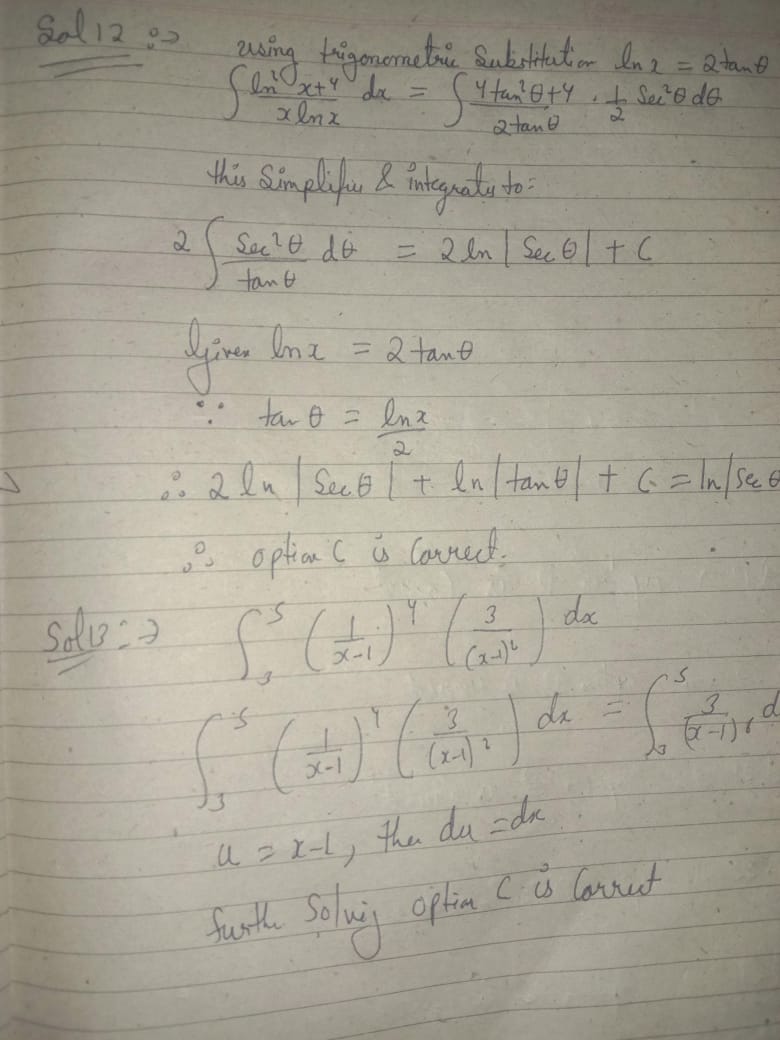 Sol 12 :→
using trigonometric Substitution ln x = 2tanθ
∫ ln² x+4 / x ln x dx = ∫ 4tan²θ+4 / 2tanθ . 1/2 Sec²θ dθ
this Simplifies & integrates to:
2 ∫ Sec²θ / tanθ dθ = 2 ln | Sec θ | + C
Given ln x = 2 tanθ
∵ tan θ = ln x / 2
∴ 2 ln | Sec θ | + ln | tan θ | + C = ln | Sec θ
∴ option C is Correct.
Sol 13 :→ ∫₃⁵ (1/x-1)⁴ (3/(x-1)²) dx
∫₃⁵ (1/x-1)⁴ (3/(x-1)²) dx = ∫₃⁵ 3/(x-1)⁶ d
u = x-1, then du = dx
further Solving option C is Correct